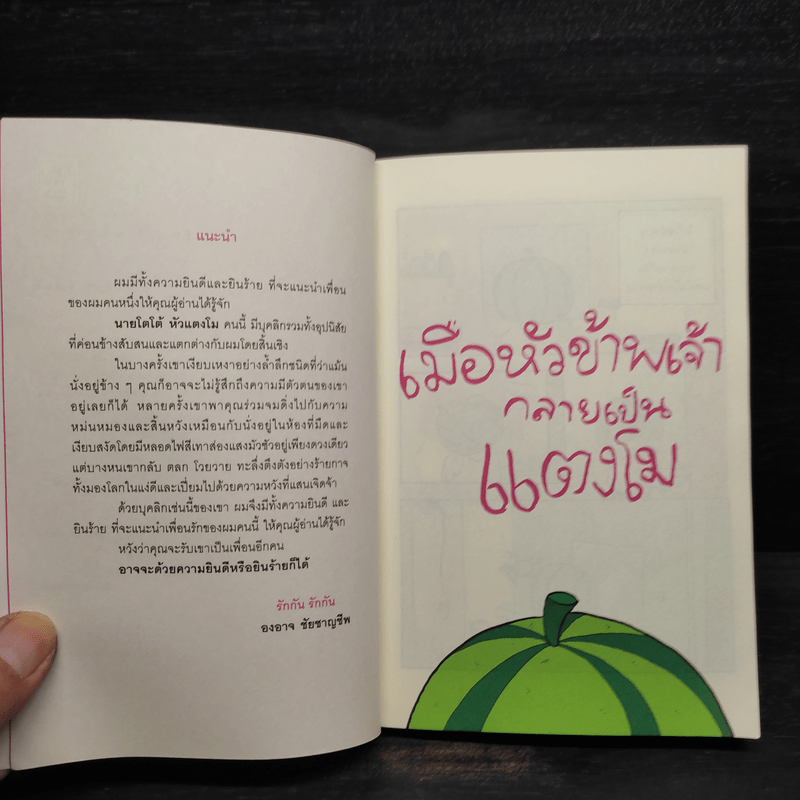 แนะนำ
ผมมีทั้งความยินดีและยินร้าย ที่จะแนะนำเพื่อน
ของผมคนหนึ่งให้คุณผู้อ่านได้รู้จัก
นายโตโต้ หัวแตงโม คนนี้ มีบุคลิกรวมทั้งอุปนิสัย
ที่ค่อนข้างสับสนและแตกต่างกับผมโดยสิ้นเชิง
ในบางครั้งเขาเงียบเหงาอย่างล้ำลึกชนิดที่ว่าแม้น
นั่งอยู่ข้าง ๆ คุณก็อาจจะไม่รู้สึกถึงความมีตัวตนของเขา
อยู่เลยก็ได้ หลายครั้งเขาพาคุณร่วมจมดิ่งไปกับความ
หม่นหมองและสิ้นหวังเหมือนกับนั่งอยู่ในห้องที่มืดและ
เงียบสงัดโดยมีหลอดไฟสีเทาส่องแสงมัวซัวอยู่เพียงดวงเดียว
แต่บางหนเขากลับ ตลก โวยวาย ทะลึ่งตึงตังอย่างร้ายกาจ
ทั้งมองโลกในแง่ดีและเปี่ยมไปด้วยความหวังที่แสนเจิดจ้า
ด้วยบุคลิกเช่นนี้ของเขา ผมจึงมีทั้งความยินดี และ
ยินร้าย ที่จะแนะนำเพื่อนรักของผมคนนี้ ให้คุณผู้อ่านได้รู้จัก
หวังว่าคุณจะรับเขาเป็นเพื่อนอีกคน
อาจจะด้วยความยินดีหรือยินร้ายก็ได้
รักกัน รักกัน
องอาจ ชัยชาญชีพ
เมื่อหัวข้าพเจ้า
กลายเป็น
แตงโม